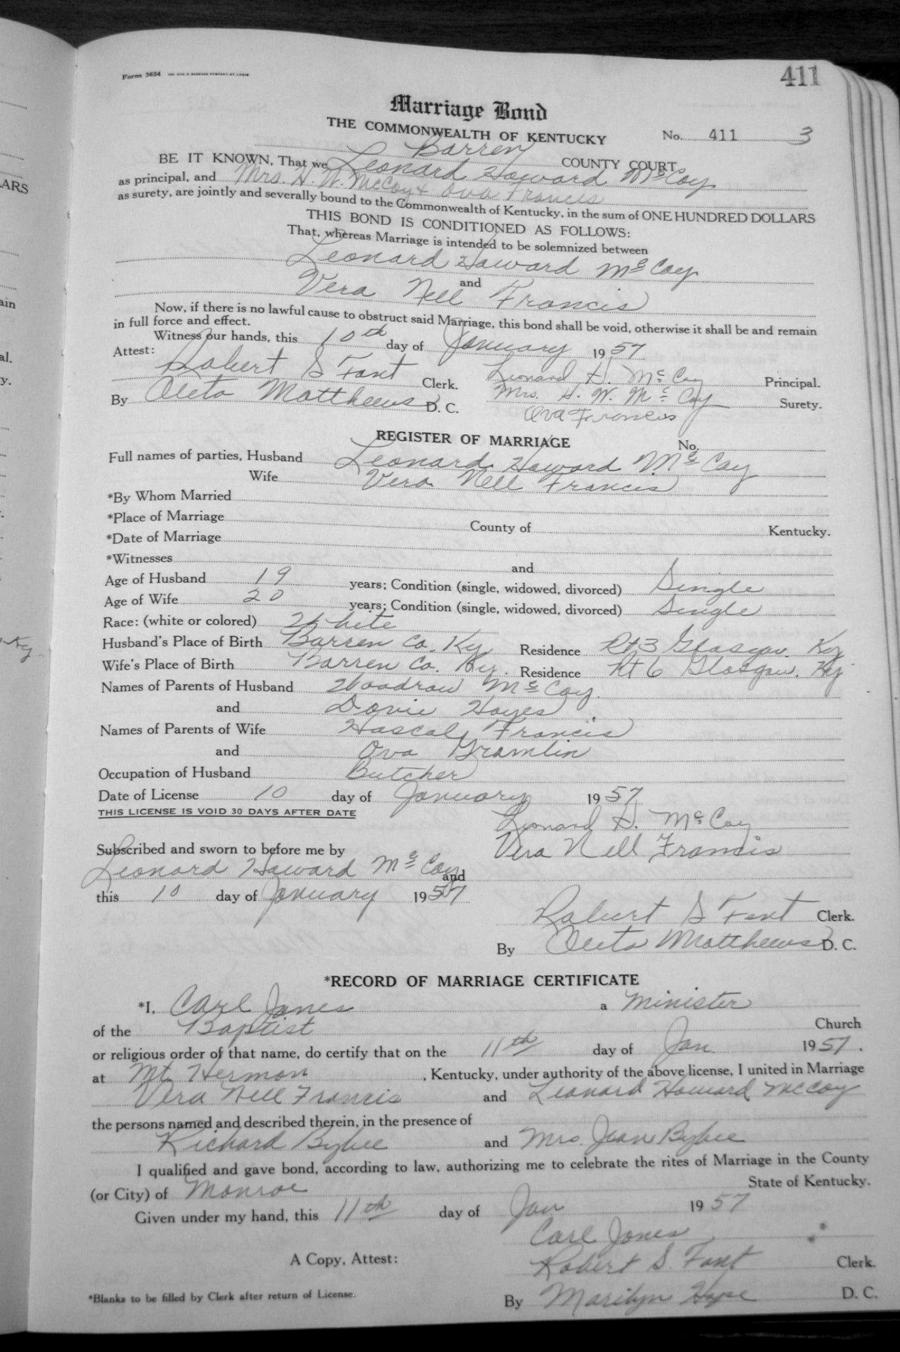 411
Form 3654
Marriage Bond
THE COMMONWEALTH OF KENTUCKY No. 411 3
BE IT KNOWN, That we Barren COUNTY COURT
Leonard Howard McCoy
as principal, and Mrs. H. W. McCoy & Ova Francis
as surety, are jointly and severally bound to the Commonwealth of Kentucky, in the sum of ONE HUNDRED DOLLARS
THIS BOND IS CONDITIONED AS FOLLOWS:
That, whereas Marriage is intended to be solemnized between
Leonard Howard McCoy
and
Vera Nell Francis
Now, if there is no lawful cause to obstruct said Marriage, this bond shall be void, otherwise it shall be and remain
in full force and effect.
Witness our hands, this 10th day of January 1957
Attest: Robert S Fant Clerk. Leonard H. McCoy Principal.
By Oleta Matthews D. C. Mrs. H. W. McCoy Surety.
Ova Francis
REGISTER OF MARRIAGE No.
Full names of parties, Husband Leonard Howard McCoy
Wife Vera Nell Francis
*By Whom Married
*Place of Marriage County of Kentucky.
*Date of Marriage
*Witnesses and
Age of Husband 19 years; Condition (single, widowed, divorced) Single
Age of Wife 20 years; Condition (single, widowed, divorced) Single
Race: (white or colored) White
Husband's Place of Birth Barren Co. Ky Residence Rt 3 Glasgow. Ky
Wife's Place of Birth Barren Co. Ky. Residence Rt 6 Glasgow. Ky
Names of Parents of Husband Woodrow McCoy
and Dovie Hayes
Names of Parents of Wife Hascal Francis
and Ova Gramlin
Occupation of Husband Butcher
Date of License 10 day of January 1957
THIS LICENSE IS VOID 30 DAYS AFTER DATE
Leonard H. McCoy
Subscribed and sworn to before me by Vera Nell Francis
Leonard Howard McCoy and
this 10 day of January 1957
Robert S Fant Clerk.
By Oleta Matthews D. C.
*RECORD OF MARRIAGE CERTIFICATE
*I, Carl Jones a Minister
of the Baptist Church
or religious order of that name, do certify that on the 11th day of Jan 1957.
at Mt. Hermon, Kentucky, under authority of the above license, I united in Marriage
Vera Nell Francis and Leonard Howard McCoy
the persons named and described therein, in the presence of
Richard Bybee and Mrs. Jean Bybee
I qualified and gave bond, according to law, authorizing me to celebrate the rites of Marriage in the County
(or City) of Monroe State of Kentucky.
Given under my hand, this 11th day of Jan 1957
Carl Jones
A Copy, Attest: Robert S. Fant Clerk.
*Blanks to be filled by Clerk after return of License. By Marilyn Hope D. C.